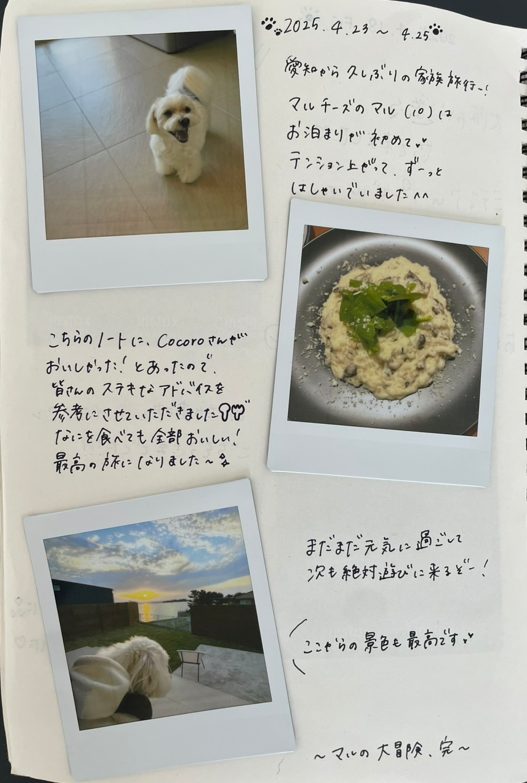 2025.4.23~4.25
愛知から久しぶりの家族旅行ー!
マルチーズのマル(10)は
お泊まりが初めて
テンション上がって、ずーっと
はしゃいでいました^^
こちらのノートに、Cocoroさんが
おいしかった!とあったので、
皆さんのステキなアドバイスを
参考にさせていただきました
なにを食べても全部おいしい!
最高の旅になりました~
まだまだ元気に過ごして
次も絶対遊びに来るぞー!
ここからの景色も最高です
~マルの大冒険、完~